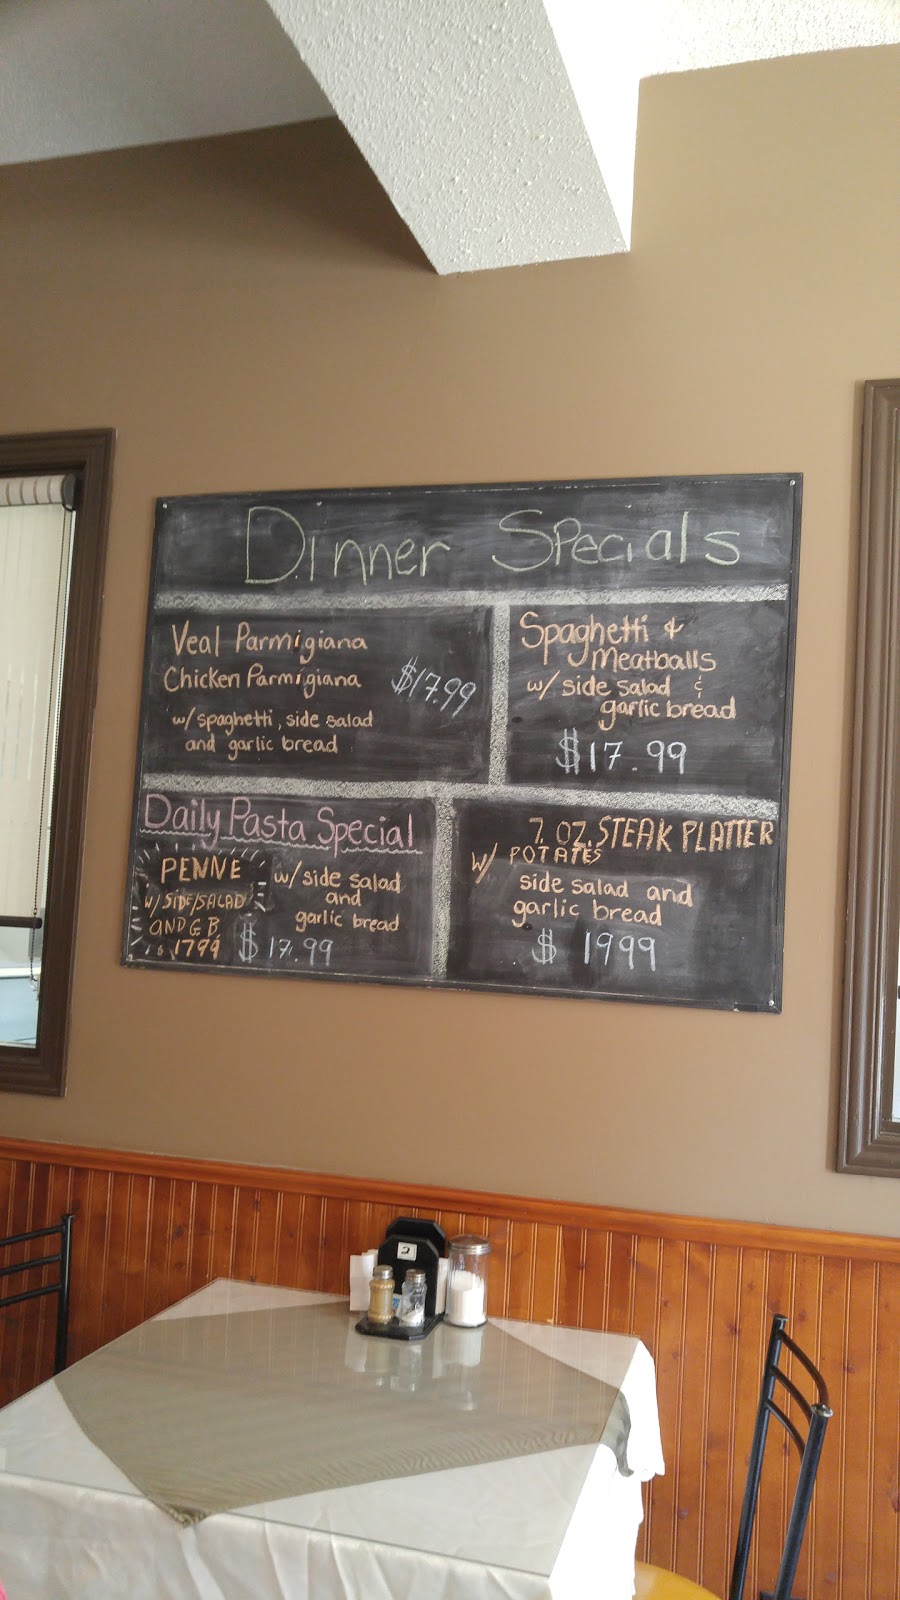 Dinner Specials
Veal Parmigiana
Chicken Parmigiana
$17.99
w/ spaghetti, side salad
and garlic bread
Spaghetti &
Meatballs
w/ side salad &
garlic bread
$17.99
Daily Pasta Special
PENNE
w/ SIDE/SALAD
AND G B
w/ side salad
and
garlic bread
$17.99
7. OZ. STEAK PLATTER
w/ POTATES
side salad and
garlic bread
$ 1999